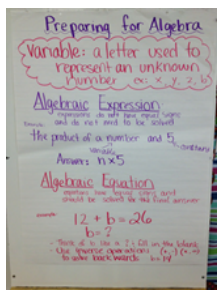 Preparing for Algebra
Variable: a letter used to
represent an unknown
number ex: x, y, z, b
Algebraic Expression
expressions do not have equal signs
and do not need to be solved
Example:
the product of a number and 5
variable
Answer: n x 5
Algebraic Equation
equations have equal signs and
should be solved for the final answer
Example:
12 + b = 26
b = ?
- Think of it like a fill in the blank
- Use inverse operations
to solve backwards b = 14